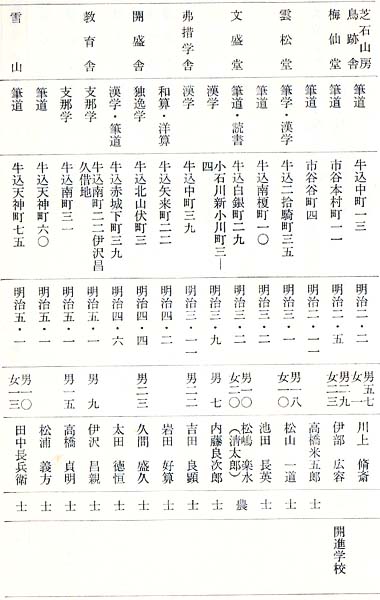 芝石山房 鳥跡舎 筆道 牛込中町一三 明治二・二 男五七 川上脩斎
梅仙堂 筆道 市谷本村町一一 明治二・五 男二九 女二三 伊部広容 開進学校
筆道 市谷谷町四 明治二・一一 高橋米五郎 士
雲松堂 筆学・漢学 牛込二拾騎町三五 明治三・一 男一八 松山一道 士
筆道 牛込南榎町一〇 明治三・一 池田長英 士
文盛堂 筆道・読書 牛込白銀町二九 明治三・二 男一〇〇 女二〇 松嶋楽水(清太郎) 農
漢学 小石川新小川町三―四 明治三・九 男七 内藤良次郎 士
弗措学舎 漢学 牛込中町三九 明治三・一一 男二二 吉田良顕 士
和算・洋算 牛込矢来町二二 明治四・二 岩田好算 士
開盛舎 独逸学 牛込北山伏町三 明治四・四 男二三 久間盛久 士
漢学・筆道 牛込赤城下町三九 明治四・六 太田徳恒 士
教育舎 支那学 牛込南町二二伊沢昌久借地 明治五・一 男九 伊沢昌親 士
支那学 牛込南町三一 明治五・一 男一五 高橋貞明 士
筆道 牛込天神町六〇 明治五・一 松浦義方 士
雪山 筆道 牛込天神町七五 明治五・一 男一〇 女一三 田中長兵衛 士